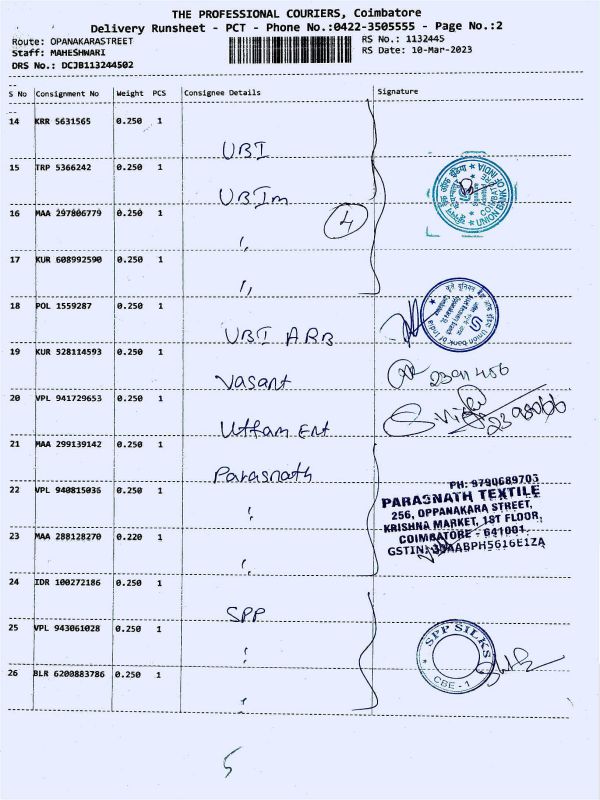 THE PROFESSIONAL COURIERS, Coimbatore
Delivery Runsheet - PCT - Phone No.:0422-3505555 - Page No.:2
Route: OPANAKARASTREET RS No.: 1132445
Staff: MAHESHWARI RS Date: 10-Mar-2023
DRS No.: DCJB113244502
S No Consignment No Weight PCS Consignee Details Signature
14 KRR 5631565 0.250 1
UBI
15 TRP 5366242 0.250 1
UBIm
16 MAA 297806779 0.250 1
4
"
17 KUR 608992590 0.250 1
"
UNION BANK OF INDIA
COIMBATORE
18 POL 1559287 0.250 1
UBI ARB
Union bank of India
19 KUR 528114593 0.250 1
Vasant
2391456
20 VPL 941729653 0.250 1
Uttam Ent
2398066
21 MAA 299139142 0.250 1
Parasnath
22 VPL 940815036 0.250 1
"
PH: 9790689703
PARASNATH TEXTILE
256, OPPANAKARA STREET,
KRISHNA MARKET, 1ST FLOOR,
COIMBATORE - 641001.
GSTIN: 33AABPH5616E1ZA
23 MAA 288128270 0.220 1
"
24 IDR 100272186 0.250 1
SPP
25 VPL 943061028 0.250 1
"
SPP SILKS
CBE - 1
26 BLR 6200883786 0.250 1
"
5